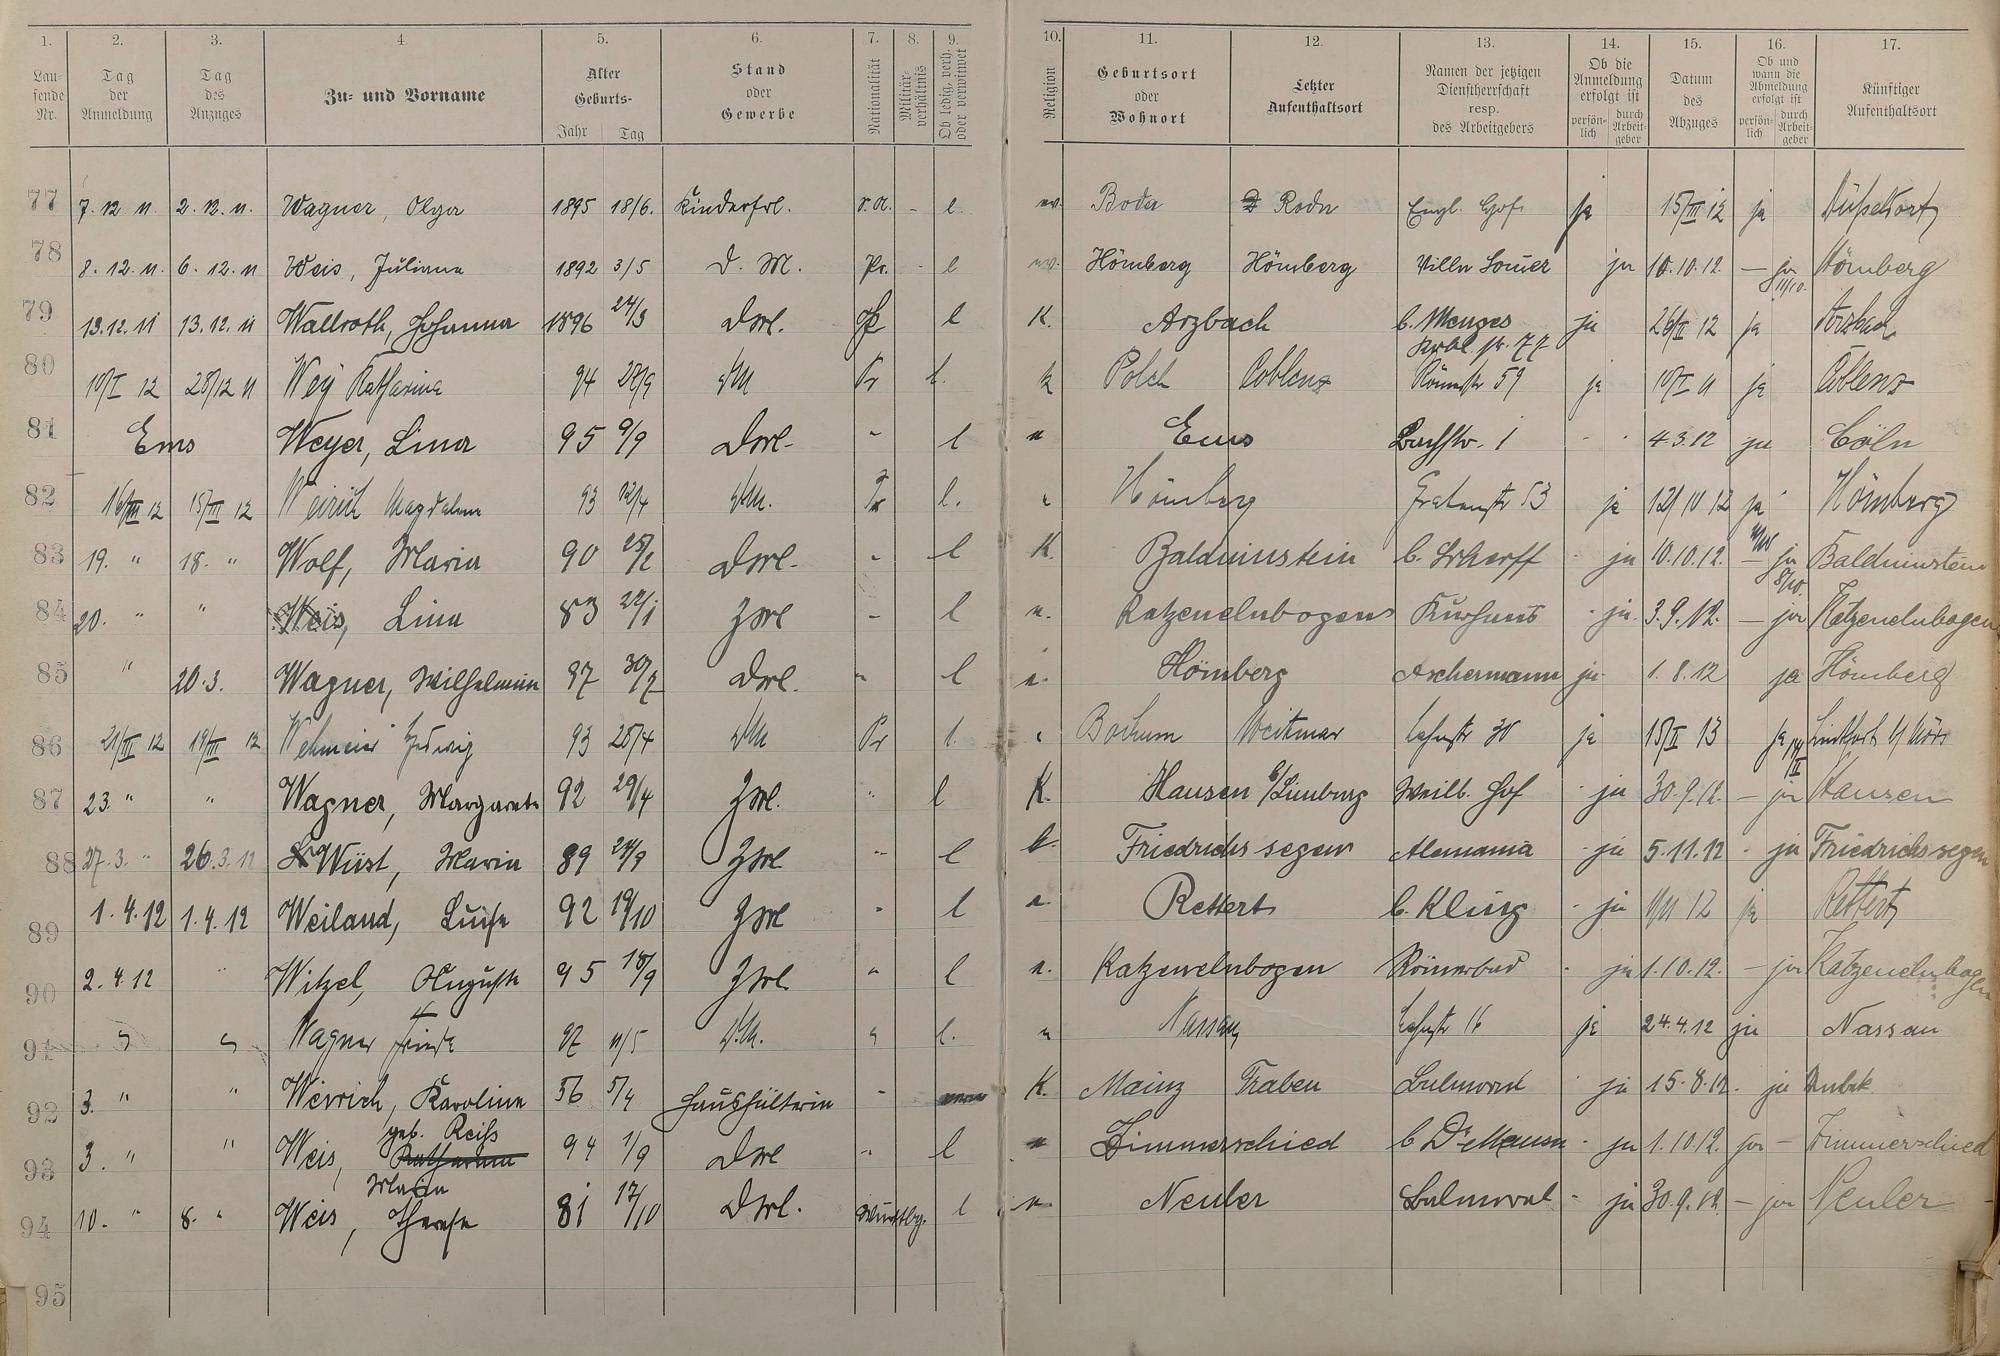 1. 2. 3. 4. 5. 6. 7. 8. 9. 10. 11. 12. 13. 14. 15. 16. 17.
Lau-fende Nr. Tag der Anmeldung Tag des Anzuges Zu- und Vorname Alter Geburts- Jahr Tag Stand oder Gewerbe Nationalität Militär-verhältnis Ob ledig, verh. oder verwitwet Religion Geburtsort oder Wohnort Letzter Aufenthaltsort Namen der jetzigen Dienstherrschaft resp. des Arbeitgebers Ob die Anmeldung erfolgt ist persön-lich durch Arbeit-geber Datum des Abzuges Ob und wann die Abmeldung erfolgt ist persön-lich durch Arbeit-geber Künftiger Aufenthaltsort
77 7. 12 11. 2. 12. 11. Wagner, Olga 1895 18/6. Kinderfrl. - l. ev. Roda Engl. Hof ja 15/III 12 ja Düsseldorf
78 8. 12. 11. 6. 12. 11 Weis, Juliana 1892 3/5 D. M. Pr. - l ev. Hömberg Hömberg Villa ja 10.10.12. - ja 11/10. Hömberg
79 13.12.11 13.12.11 Wallroth, Johanna 1896 24/3 Dml. l K. Arzbach b. Menges ja 26/I 12 ja Arzbach
80 10/I 12 28/12 11 Wey Katharina 94 28/9 DM Pr l. k Polch Coblenz Römerstr 59 ja 10/I 11 ja Coblenz
81 Ems Weyer, Lina 95 9/9 Dml. " l Ems Bachstr. 1 - - 4.3.12 ja Cöln
82 16/III 12 15/III 12 Weirich Magdalena 93 12/4 DM. Pr l. " Hömberg Grabenstr 53 ja 12/10 12 ja Hömberg
83 19. " 18. " Wolf, Maria 90 25/2 Dml. " l K. Balduinstein b. Scharff - ja 10.10.12. - ja Balduinstein
84 20. " " Weis, Lina 83 22/1 Zml " l e. Katzenelnbogen Kurhaus - ja. 3.9.12. - 8/10. ja Katzenelnbogen
85 " 20.3. Wagner, Wilhelmin 97 30/7 Dml. " l e. Hömberg Aschermann ja 1.8.12 ja Hömberg
86 21/III 12 19/III 12 Wehmeier Hedwig 93 28/4 DM Pr l. Bochum Weitmar Lahnstr 30 ja 15/II 13 ja
87 23. " " Wagner, Margareta 92 29/4 Zml. " l K. Hausen b/Limburg Weilb. Hof - ja 30.9.12. - ja Hausen
88 27.3. " 26.3.12 Wüst, Maria 89 24/9 Zml " l k. Friedrichssegen Alemania - ja 5.11.12 - ja Friedrichssegen
89 1.4.12 1.4.12 Weiland, Luise 92 19/10 Zml " l e. Rettert b. Kling - ja 1/11 12 ja Rettert
90 2.4.12 " Witzel, Auguste 95 18/9 Zml " l e. Katzenelnbogen Römerbad - ja 1.10.12. - ja Katzenelnbogen
91 " " Wagner Frieda 97 11/5 D.M. " l. " Nassau Lahnstr 16 ja 24.4.12 ja Nassau
92 3. " " Weirich, Karoline 56 5/4 Haushälterin " K. Mainz Traben Balmoral - ja 15.8.12. ja
geb. Reiss
93 3. " " Weis, Katharina 94 1/9 Dml " l Zimmerschied b Dr - ja 1.10.12. ja - Zimmerschied
Maria
94 10. " 8. " Weis, Therese 81 17/10 Dml. Württbg. l Neuler Balmoral - ja 30.9.12. - ja Neuler
95